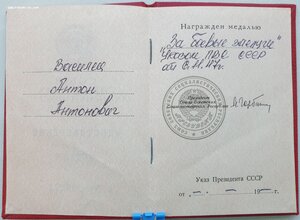 Василец
Антон
Антонович
Награжден медалью
"За боевые заслуги"
Указом ПВС СССР
от 6.11.47г.
Президент
Союза Советских
Социалистических Республик
М. Горбачев
Указ Президента СССР
от - - 19 - г.